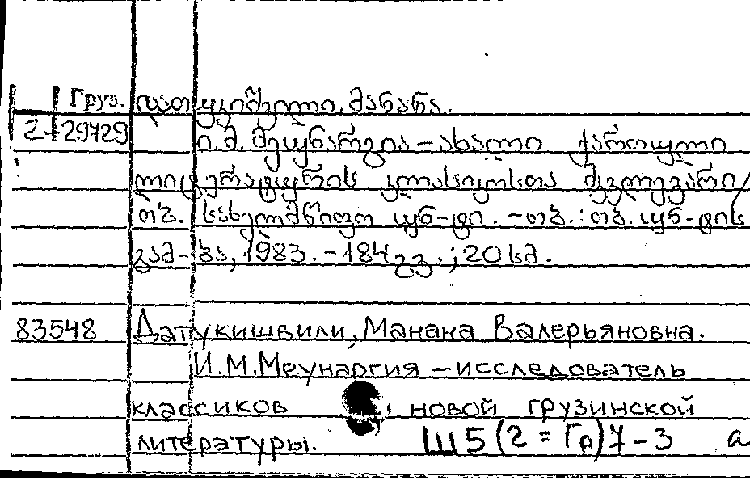 Груз. დათუკიშვილი, მანანა.
2-29729 ი. მ. მეუნარგია – ახალი ქართული
ლიტერატურის კლასიკოსთა მკვლევარი /
თბ. სახელმწიფო უნ-ტი. – თბ. : თბ. უნ-ტის
გამ-ბა, 1983. – 184 გვ. ; 20 სმ.
83548 Датукишвили, Манана Валерьяновна.
И. М. Меунаргия – исследователь
классиков новой грузинской
литературы. Ш5(2=Гр)7-3 а